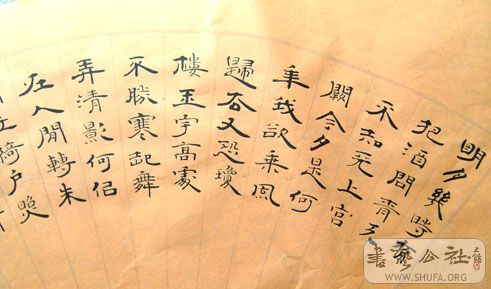 明月幾時
把酒問青天
不知天上宮
闕今夕是何
年我欲乘風
歸去又恐瓊
樓玉宇高處
不勝寒起舞
弄清影何似
在人閒轉朱
綺戶照
書藝公社
WWW.SHUFA.ORG